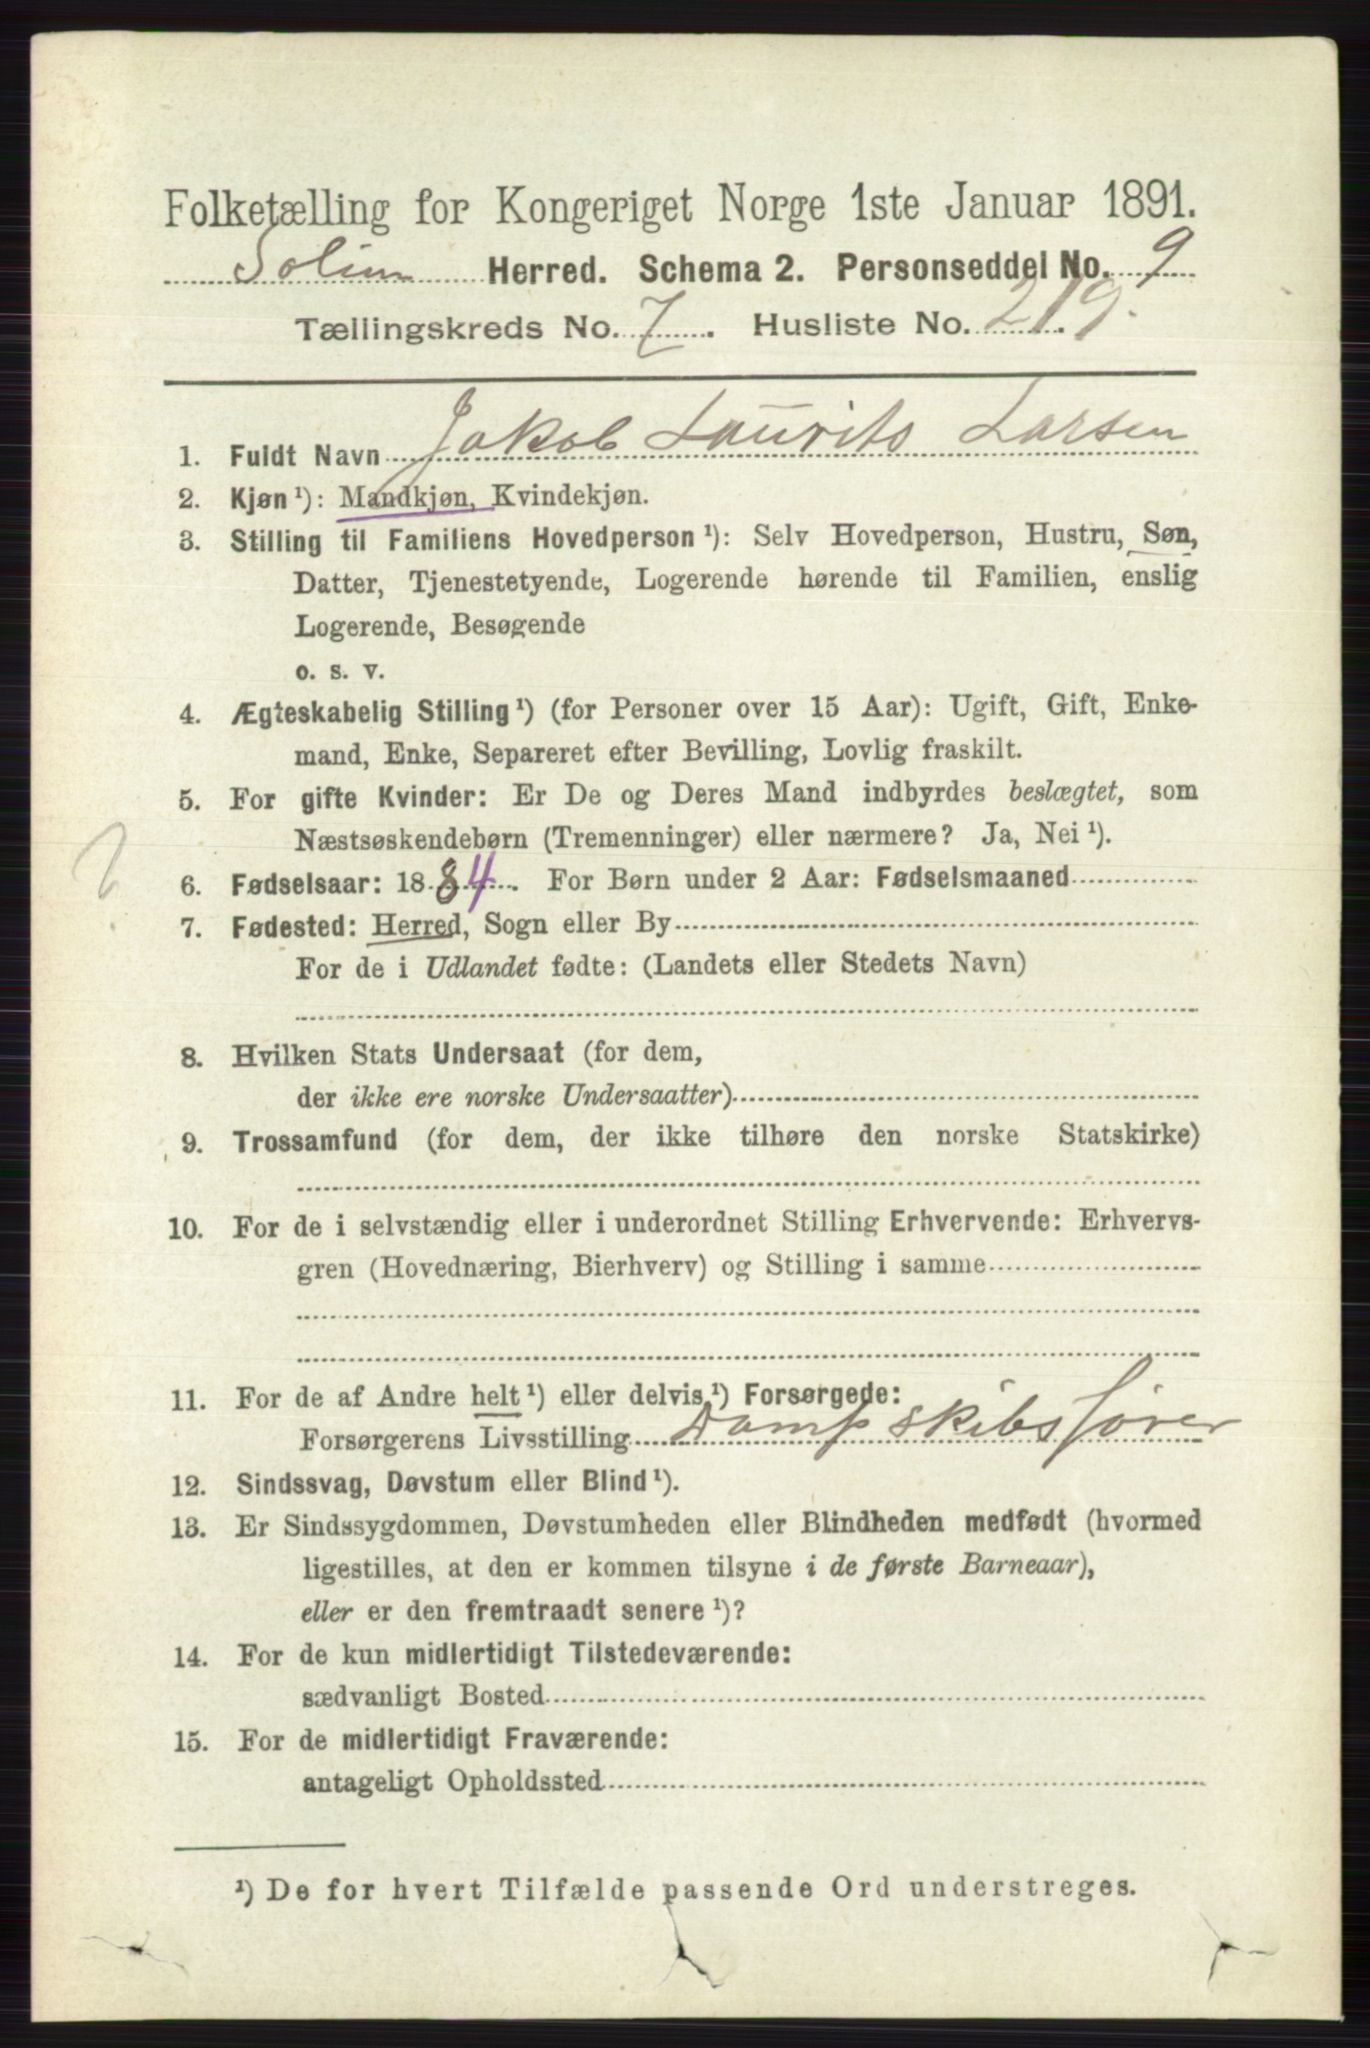 Folketælling for Kongeriget Norge 1ste Januar 1891.
Solum Herred. Schema 2. Personseddel No. 9
Tællingskreds No. 7. Husliste No. 219.
1. Fuldt Navn Jakob Laurits Larsen
2. Kjøn ¹): Mandkjøn, Kvindekjøn.
3. Stilling til Familiens Hovedperson ¹): Selv Hovedperson, Hustru, Søn,
Datter, Tjenestetyende, Logerende hørende til Familien, enslig
Logerende, Besøgende
o. s. v.
4. Ægteskabelig Stilling ¹) (for Personer over 15 Aar): Ugift, Gift, Enke-
mand, Enke, Separeret efter Bevilling, Lovlig fraskilt.
5. For gifte Kvinder: Er De og Deres Mand indbyrdes beslægtet, som
Næstsøskendebørn (Tremenninger) eller nærmere? Ja, Nei ¹).
?
6. Fødselsaar: 1884. For Børn under 2 Aar: Fødselsmaaned
7. Fødested: Herred, Sogn eller By
For de i Udlandet fødte: (Landets eller Stedets Navn)
8. Hvilken Stats Undersaat (for dem,
der ikke ere norske Undersaatter)
9. Trossamfund (for dem, der ikke tilhøre den norske Statskirke)
10. For de i selvstændig eller i underordnet Stilling Erhvervende: Erhvervs-
gren (Hovednæring, Bierhverv) og Stilling i samme
11. For de af Andre helt ¹) eller delvis ¹) Forsørgede:
Forsørgerens Livsstilling Dampskibsfører
12. Sindssvag, Døvstum eller Blind ¹).
13. Er Sindssygdommen, Døvstumheden eller Blindheden medfødt (hvormed
ligestilles, at den er kommen tilsyne i de første Barneaar),
eller er den fremtraadt senere ¹)?
14. For de kun midlertidigt Tilstedeværende:
sædvanligt Bosted
15. For de midlertidigt Fraværende:
antageligt Opholdssted
¹) De for hvert Tilfælde passende Ord understreges.